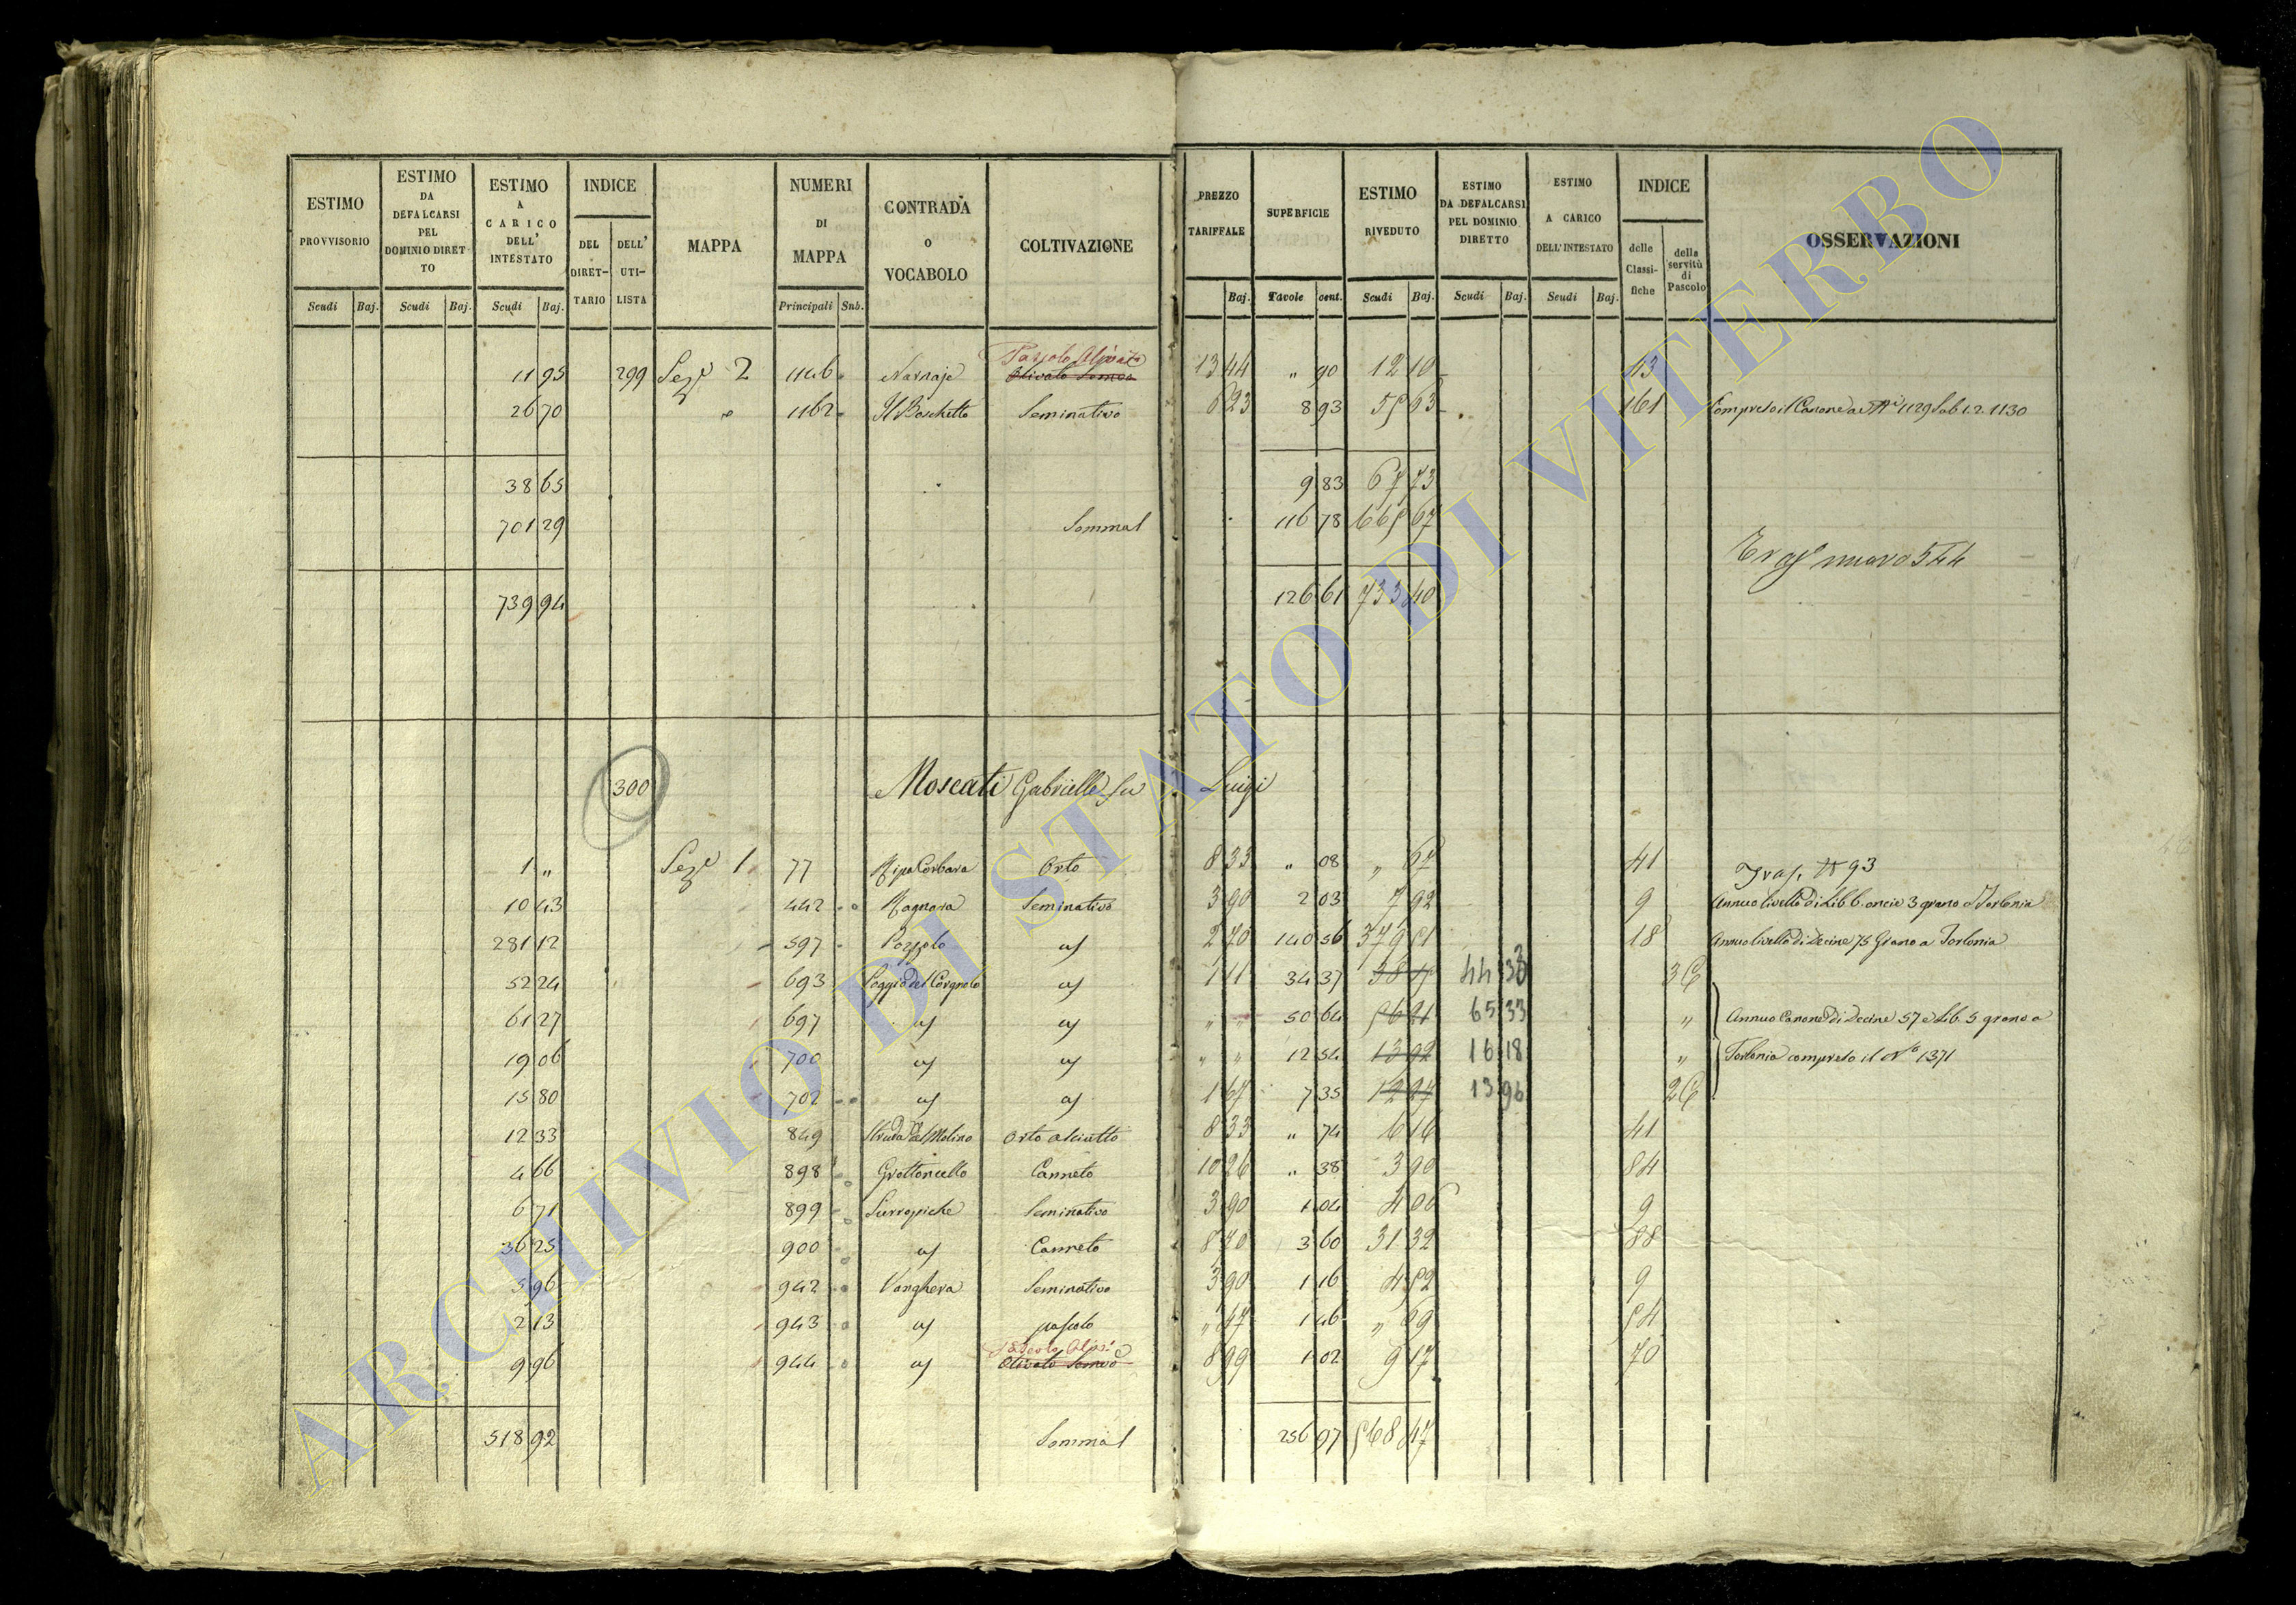 ESTIMO PROVVISORIO
ESTIMO DA DEFALCARSI PEL DOMINIO DIRETTO
ESTIMO A CARICO DELL' INTESTATO
INDICE
DEL DIRET-TARIO
DELL' UTI-LISTA
MAPPA
NUMERI DI MAPPA
CONTRADA O VOCABOLO
COLTIVAZIONE
PREZZO TARIFFALE
SUPERFICIE
ESTIMO RIVEDUTO
ESTIMO DA DEFALCARSI PEL DOMINIO DIRETTO
ESTIMO A CARICO DELL'INTESTATO
INDICE
delle Classi-fiche
della servitù di Pascolo
OSSERVAZIONI
Scudi Baj. Scudi Baj. Scudi Baj. Principali Sub. Baj. Tavole cent. Scudi Baj. Scudi Baj. Scudi Baj.
Pascolo Olivato
11 95 299 Sez.e 2 1146 Olivato 13 44 " 90 12 10 13
26 70 1162 Il Boschetto Seminativo 6 23 8 93 55 63 161 Compreso il Canone ai Ni 1129 Sub 1.2.1130
38 65 9 83 67 73
701 29 Somma 116 78 665 67
nuovo 544
739 94 126 61 733 40
300 Moscati Gabrielle fu Luigi
1 " Sez.e 1 77 Ripa Corbara Orto 8 33 " 08 " 67 41 Tras. N 93
10 43 442 Seminativo 3 90 2 03 7 92 9 Annuo livello di Lib 6. oncie 3 grano a Torlonia
281 12 597 Pozzolo 2 70 140 56 379 51 18 Annuo livello di Decine 75 Grano a Torlonia
52 24 693 Poggio del Corgnolo 1 11 34 37 44 33
61 27 697 " " 50 64 56 21 65 33 " Annuo Canone di Decine 57 e Lib. 5 grano a
19 06 700 " " 12 54 13 92 16 18 " Torlonia compreso il No 1371
15 80 702 1 67 7 35 12 27 13 96
12 33 849 Strada del Molino Orto asciutto 8 33 " 74 6 16 41
4 66 898 Grottoncello Canneto 10 26 " 38 3 90 84
6 71 899 Seminativo 3 90 1 04 4 06 9
36 25 900 Canneto 8 70 3 60 31 32 88
5 96 942 Vanghera Seminativo 3 90 1 16 4 52 9
2 13 943 pascolo " 47 1 46 " 69 54
Pascolo
9 96 944 Olivato 8 99 1 02 9 17 70
518 92 Somma 256 97 568 47
ARCHIVIO DI STATO DI VITERBO